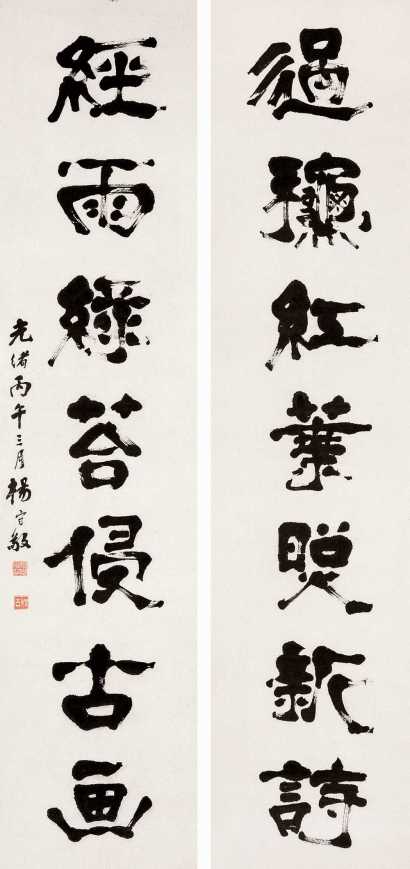 過龝紅葉新詩
經雨綠苔侵古画
光緒丙午三月楊守敬